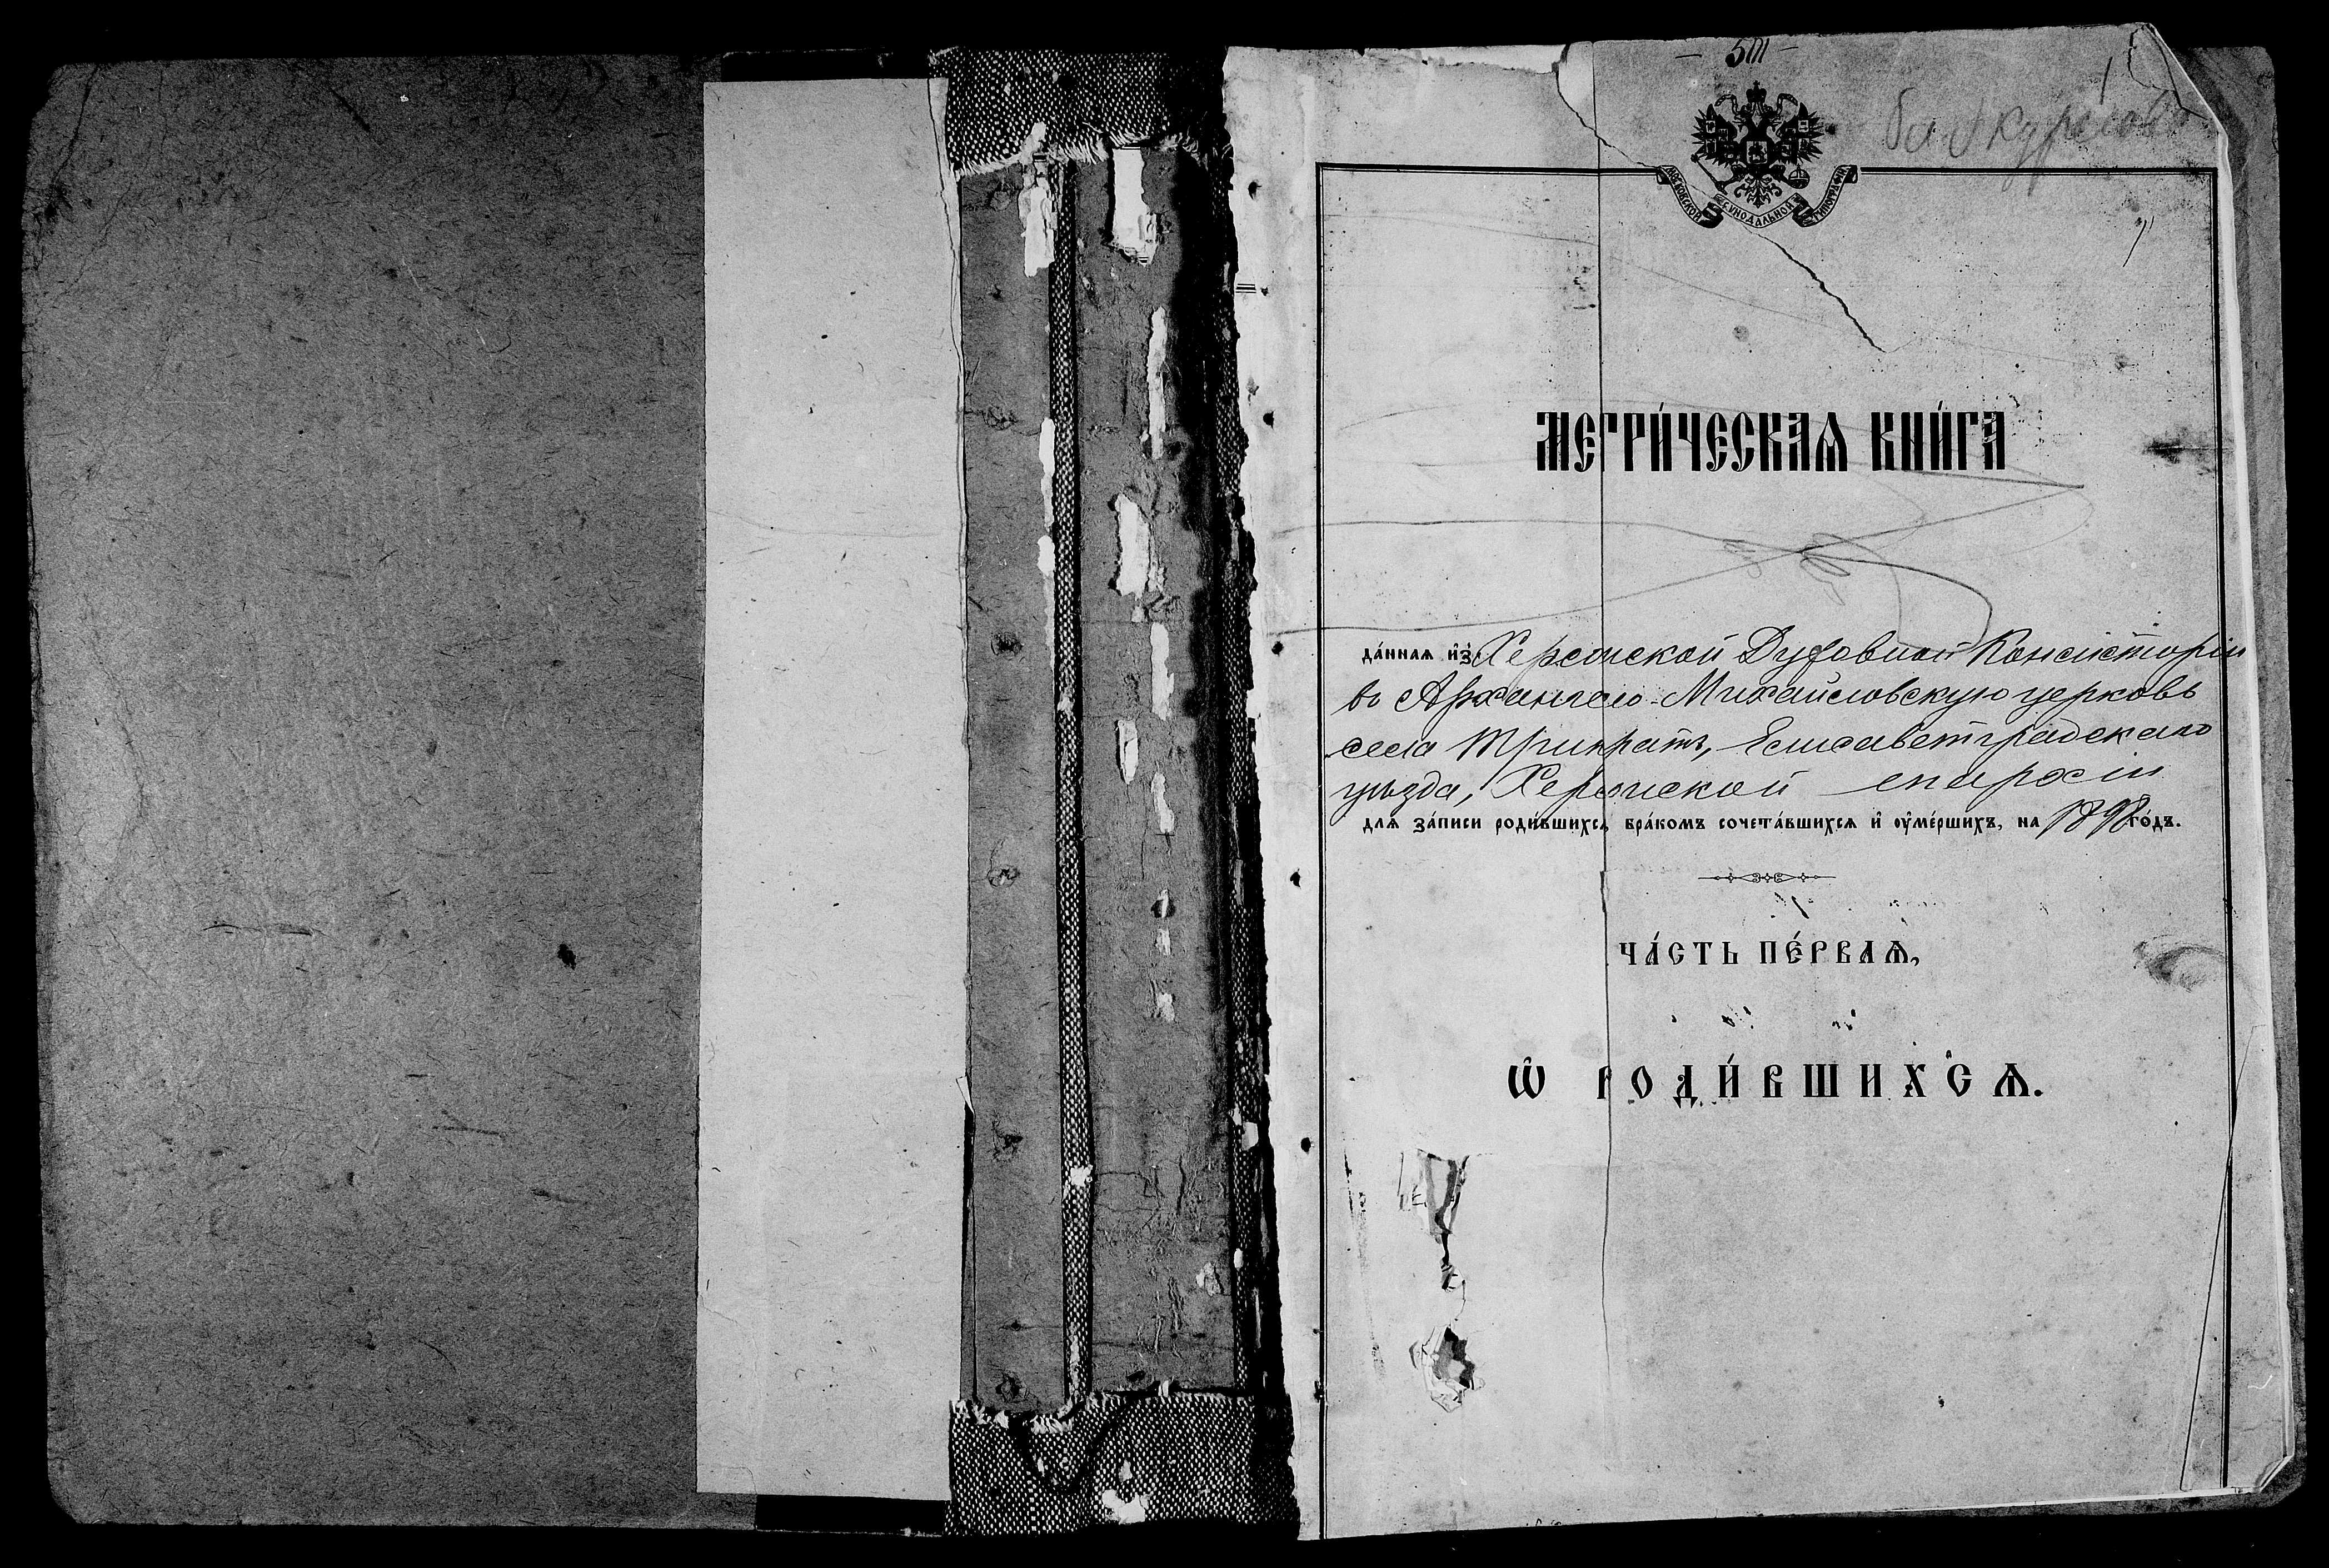 МОСКОВСКОЙ СѴНОДАЛЬНОЙ ТИПОГРАФІИ
МЕТРИ́ЧЕСКАѦ КНИ́ГА
да́ннаѧ и҆зъ Херсонской Духовной Консисторіи
въ Архангело-Михайловскую церковь
села Трикратъ, Елисаветградскаго
уѣзда, Херсонской епархіи
длѧ за́писи роди́вшихсѧ, бра́комъ сочета́вшихсѧ и҆ ᲂу҆ме́ршихъ, на 1898 го́дъ.
ЧА́СТЬ ПЕ́РВАѦ,
Ѽ РОДИ́ВШИХСѦ.